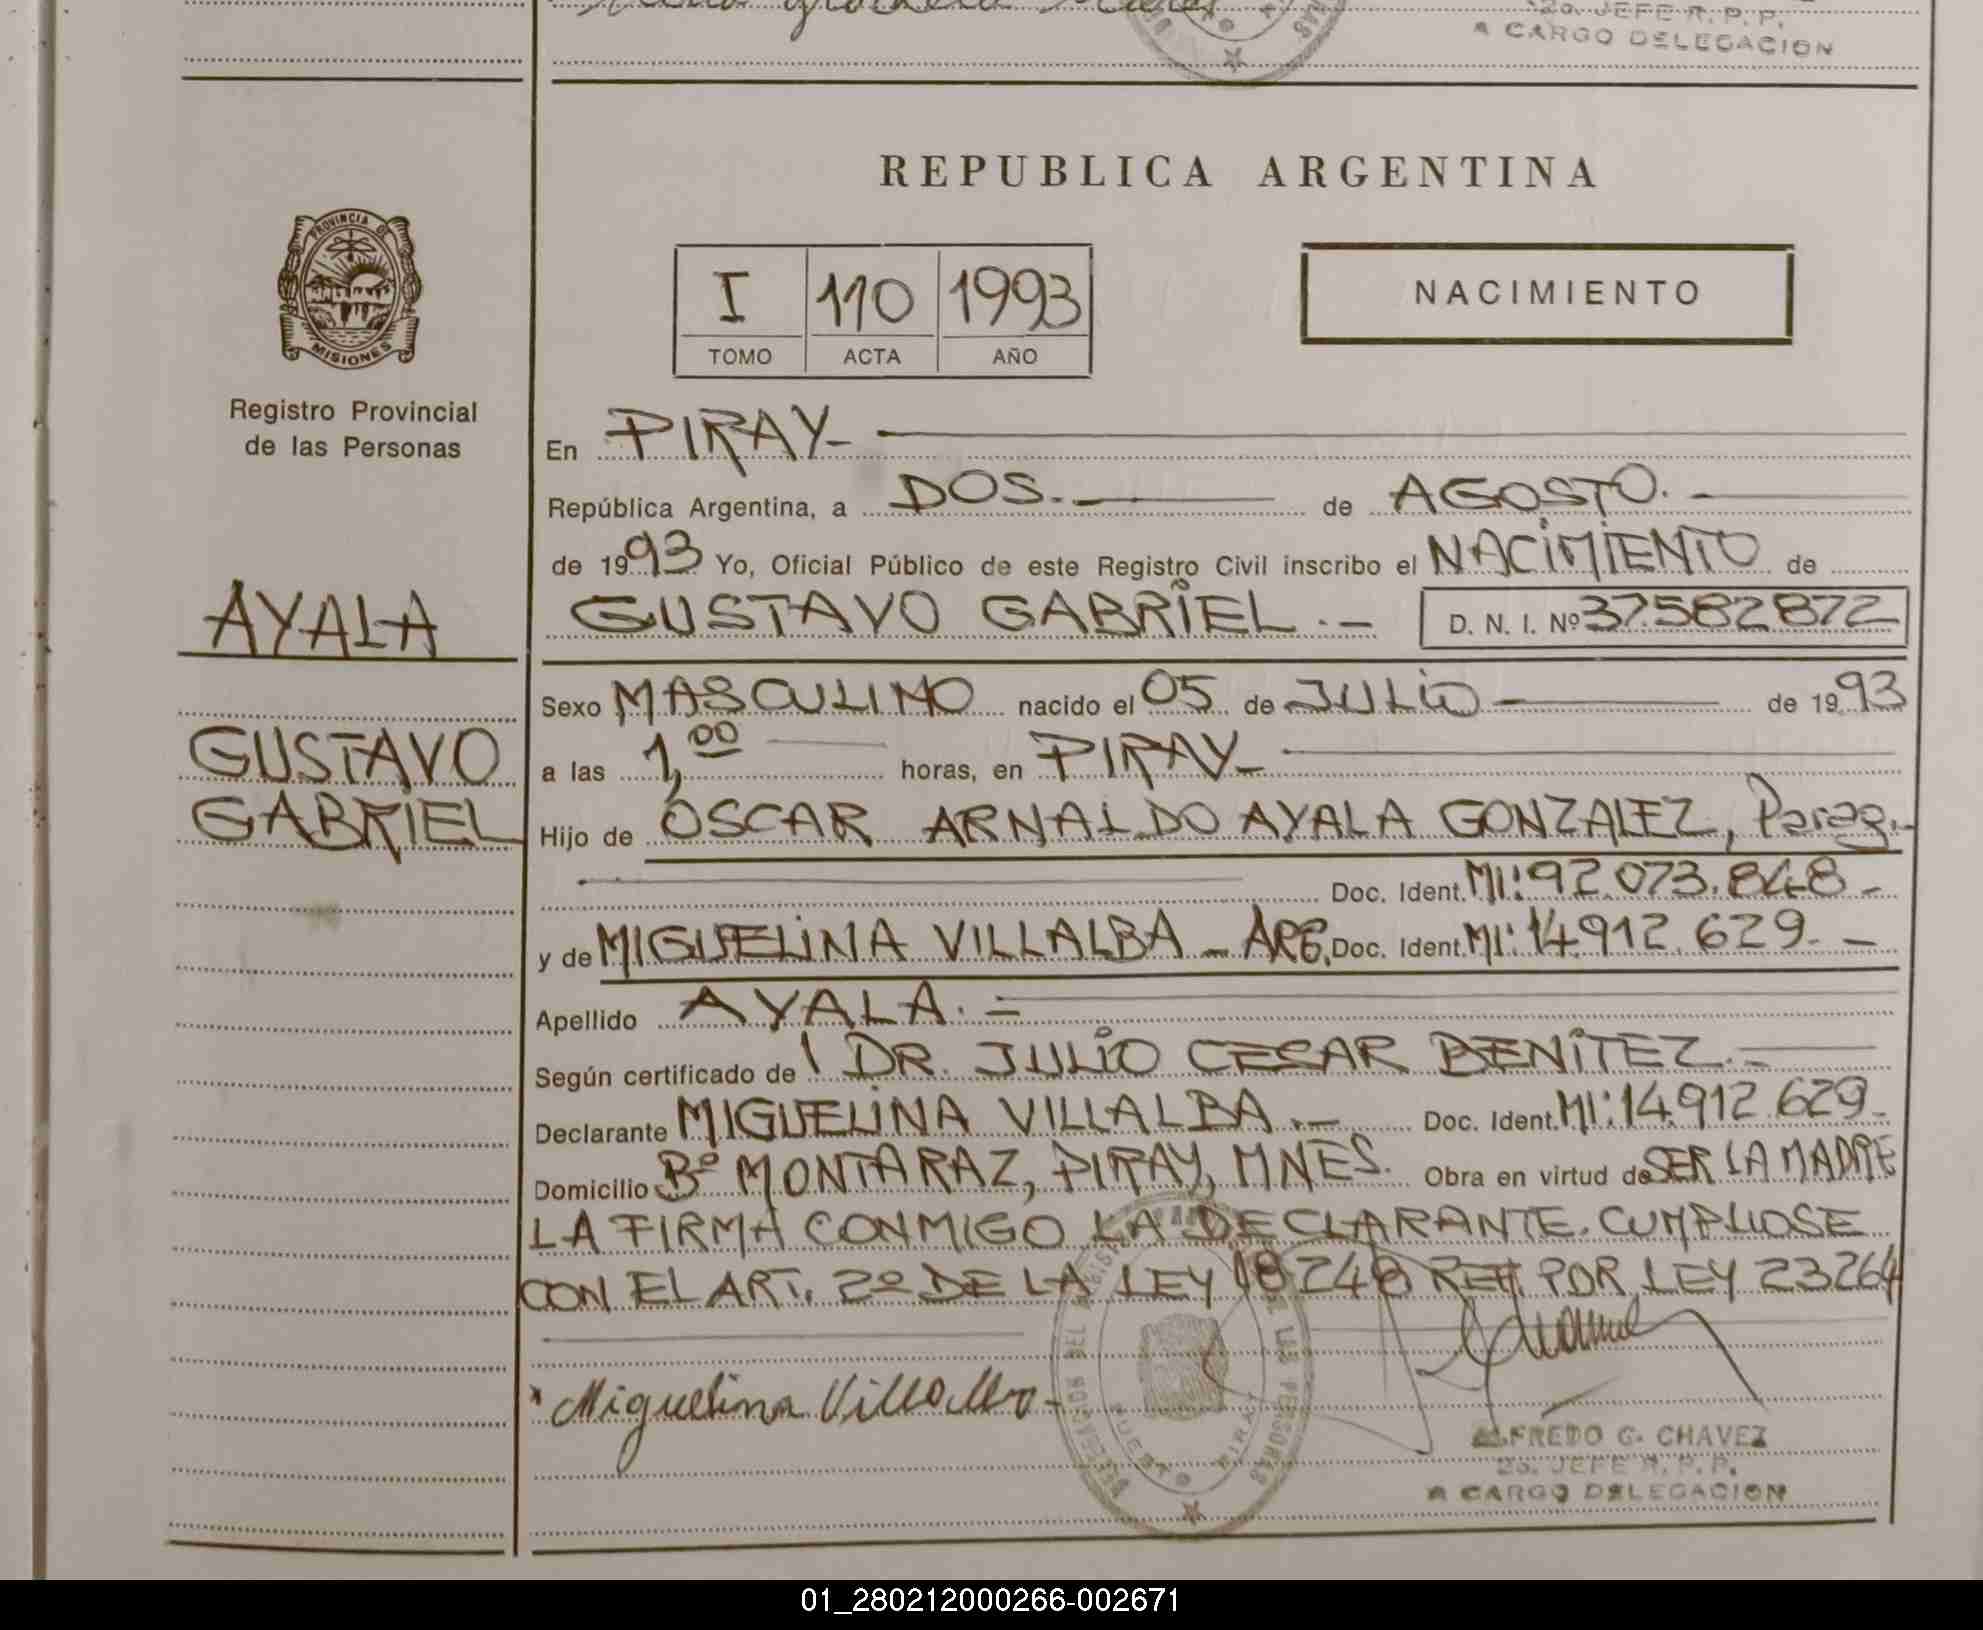 2o. JEFE R. P. P.
A CARGO DELEGACION
REPUBLICA ARGENTINA
PROVINCIA DE
MISIONES
I 110 1993
TOMO ACTA AÑO
NACIMIENTO
Registro Provincial
de las Personas
En PIRAY-
República Argentina, a DOS.- de AGOSTO.-
de 1993 Yo, Oficial Público de este Registro Civil inscribo el NACIMIENTO de
AYALA
GUSTAVO GABRIEL.- D. N. I. Nº 37.582872
Sexo MASCULINO nacido el 05 de JULIO - de 1993
GUSTAVO
a las 1,00 horas, en PIRAY-
GABRIEL
Hijo de OSCAR ARNALDO AYALA GONZALEZ, Parag.-
Doc. Ident. MI: 92.073.848-
y de MIGUELINA VILLALBA - ARG. Doc. Ident. MI: 14.912.629.-
Apellido AYALA.-
Según certificado de DR. JULIO CESAR BENITEZ.-
Declarante MIGUELINA VILLALBA.- Doc. Ident. MI: 14.912.629-
Domicilio Bº MONTARAZ, PIRAY, MNES. Obra en virtud de SER LA MADRE
LA FIRMA CONMIGO LA DECLARANTE. CUMPLIOSE
CON EL ART. 2º DE LA LEY 18248 REF. POR LEY 23264
Miguelina Villalba-
ALFREDO G. CHAVEZ
2o. JEFE R. P. P.
A CARGO DELEGACION
01_280212000266-002671